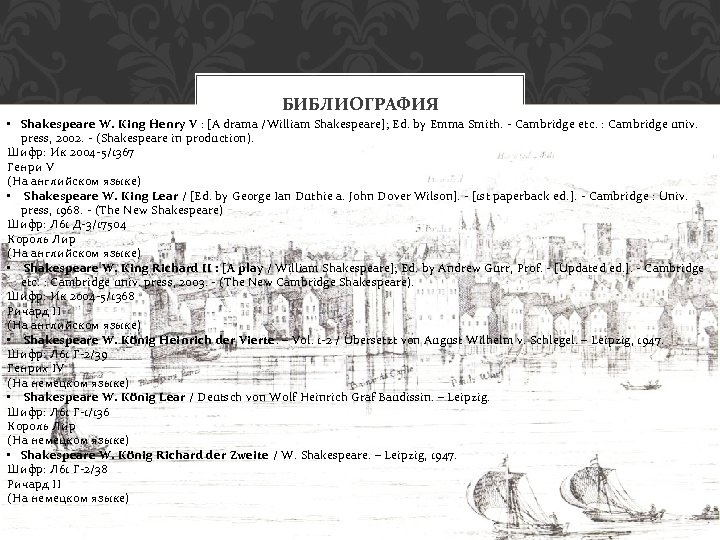 БИБЛИОГРАФИЯ
• Shakespeare W. King Henry V : [A drama /William Shakespeare]; Ed. by Emma Smith. - Cambridge etc. : Cambridge univ.
press, 2002. - (Shakespeare in production).
Шифр: Ик 2004-5/1367
Генри V
(На английском языке)
• Shakespeare W. King Lear / [Ed. by George Ian Duthie a. John Dover Wilson]. - [1st paperback ed.]. - Cambridge : Univ.
press, 1968. - (The New Shakespeare)
Шифр: Л61 Д-3/17504
Король Лир
(На английском языке)
• Shakespeare W. King Richard II : [A play / William Shakespeare]; Ed. by Andrew Gurr, Prof. - [Updated ed.]. - Cambridge
etc. : Cambridge univ. press, 2003. - (The New Cambridge Shakespeare).
Шифр: Ик 2004-5/1368
Ричард II
(На английском языке)
• Shakespeare W. König Heinrich der Vierte. – Vol. 1-2 / Übersetzt von August Wilhelm v. Schlegel. – Leipzig, 1947.
Шифр: Л61 Г-2/39
Генрих IV
(На немецком языке)
• Shakespeare W. König Lear / Deutsch von Wolf Heinrich Graf Baudissin. – Leipzig.
Шифр: Л61 Г-1/136
Король Лир
(На немецком языке)
• Shakespeare W. König Richard der Zweite / W. Shakespeare. – Leipzig, 1947.
Шифр: Л61 Г-2/38
Ричард II
(На немецком языке)